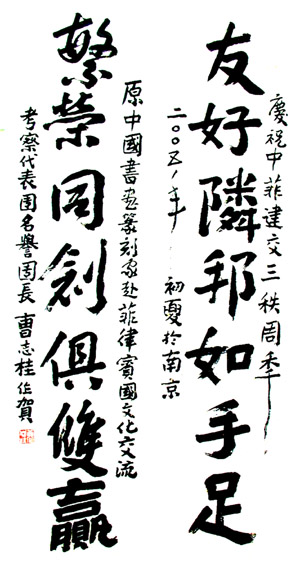 慶祝中菲建交三秩周年
友好隣邦如手足
二〇〇五年 初夏於南京
原中國書畫篆刻家赴菲律賓國文化交流
繁榮同創俱雙贏
考察代表團名譽團長 曹志桂作賀